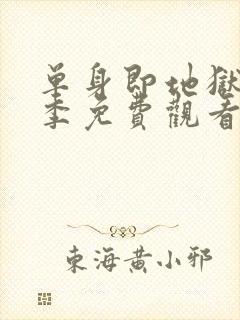 單身即地獄
季免費觀看
東海黃小邪